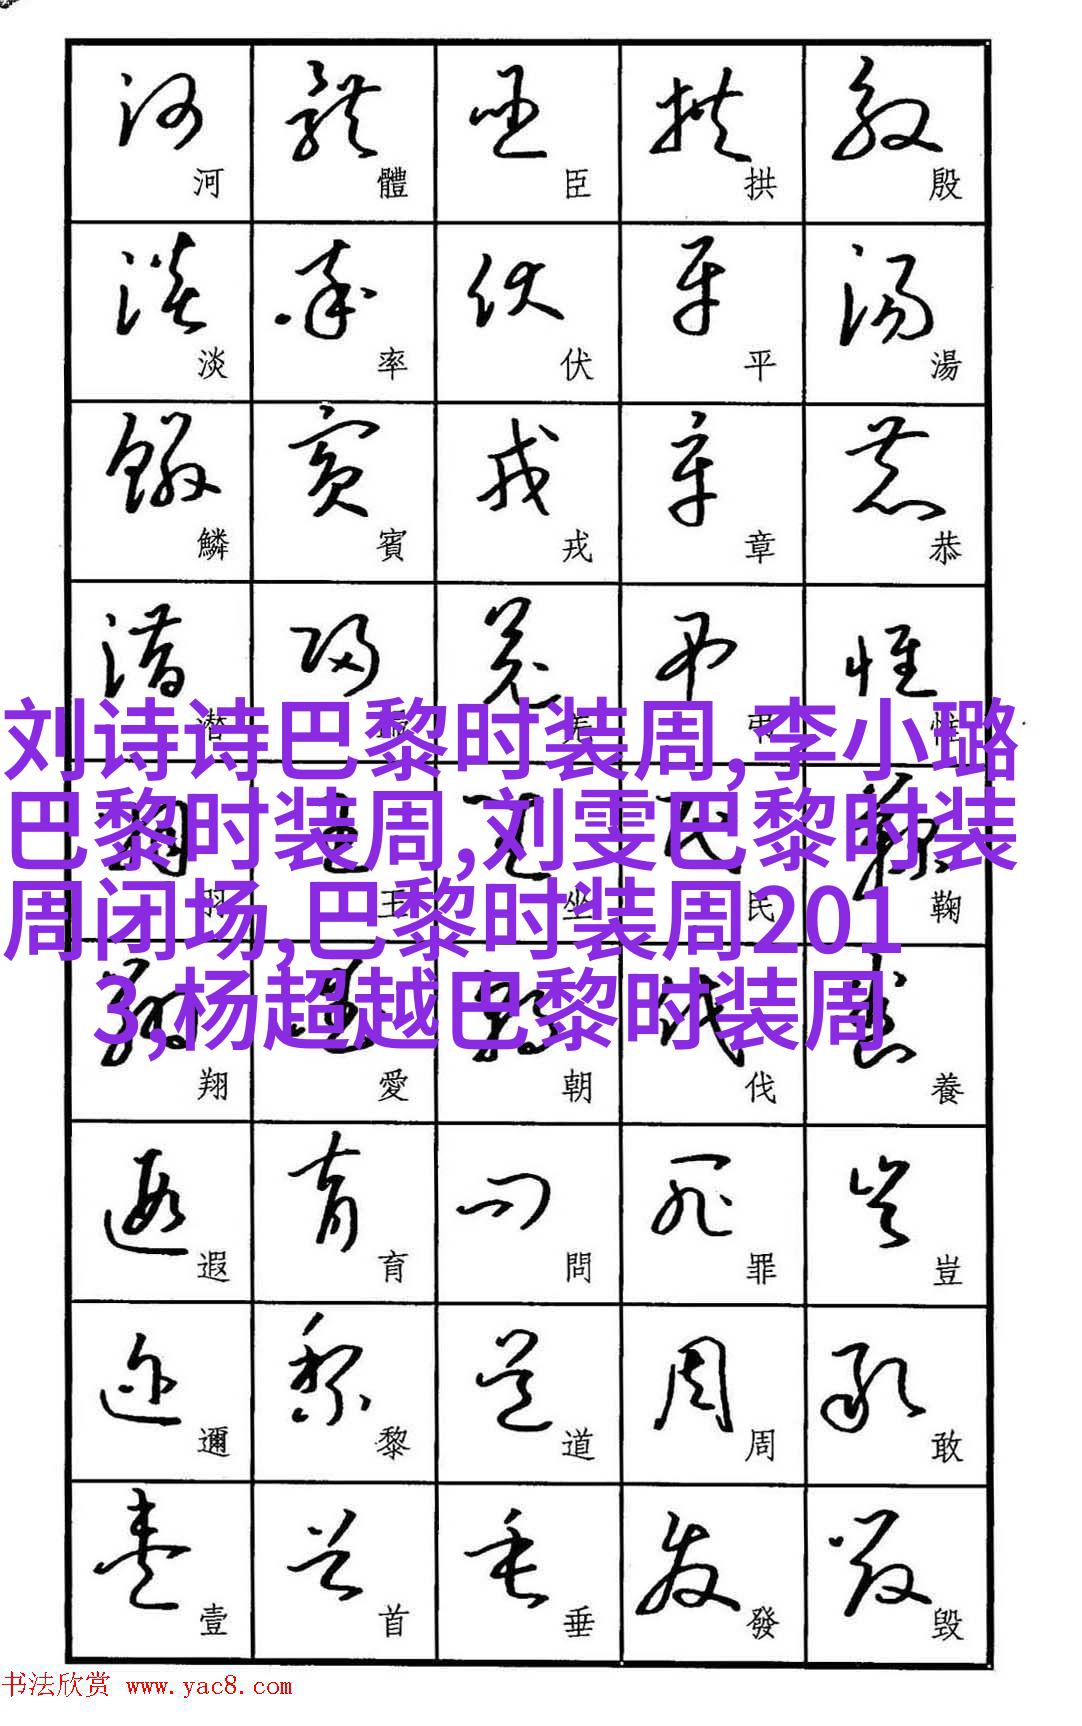 河淡鱗潜羽翔遐邇壹
體率賓歸王愛育黎首
臣伏戎羌坐朝問道垂
拱平章弔民伐罪周發
殷湯恭惟鞠養豈敢毀
刘诗诗巴黎时装周,李小璐
巴黎时装周,刘雯巴黎时装
周闭场,巴黎时装周201
3,杨超越巴黎时装周
书法欣赏 www.yac8.com